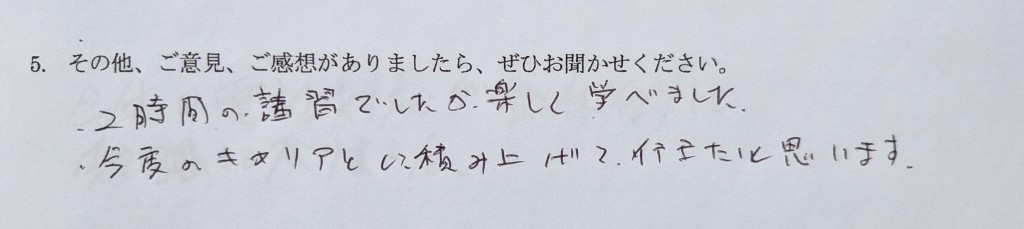 5. その他、ご意見、ご感想がありましたら、ぜひお聞かせください。
・2時間の講習でしたが楽しく学べました.
・今度のキャリアとして積み上げて、行きたいと思います.